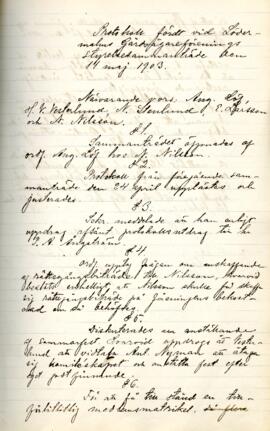 Protokoll fördt vid Söder-
malms Gårdsägareförenings
styrelsesammanträde den
14 maj 1903.
Närvarande voro Aug. Löf
H. V. Vesterlund, A. Stenlund, E. Larsson
och A. Nilsson.
§ 1.
Sammanträdet öppnades af
ordf. Aug. Löf hos A. Nilsson.
§ 2.
Protokoll från föregående sam-
manträde den 24 april upplästes och
justerades.
§ 3.
Sekr. meddelade att han enligt
uppdrag afsänt protokollsutdrag till hr
A. Angström.
§ 4.
ordf. väckte frågan om anskaffande
af rättegångsbiträde hr Nilsson, hvarvid
beslöts enhälligt, att Nilsson skulle få skaffa
sig rättegångsbiträde på föreningens bekost-
nad om så behöfdes.
§ 5.
Diskuterades om anställande
af sommarfest hvarvid uppdrogs åt Vester-
lund att vidtala Ant. Nyman att åtaga
sig och anställa fest efter
eget godtfinnande.
§ 6.
För att få till stånd en till-
förlitlig medlemsmatrikel